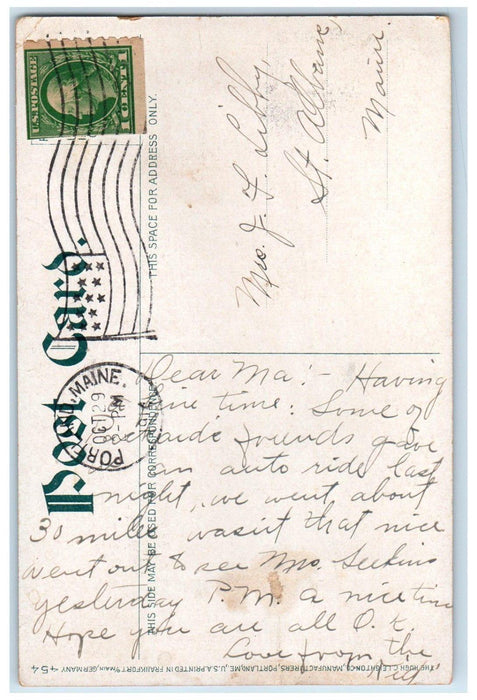 U.S. POSTAGE
1 CENT 1
Post Card.
THIS SPACE FOR ADDRESS ONLY.
THIS SIDE MAY BE USED FOR CORRESPONDENCE
PORTLAND, MAINE.
OCT 29
8 - PM
Mrs. J. F. Libby,
St. Albans,
Maine.
Dear Ma! - Having
fine time. Some of
friends gave
an auto ride last
night, we went about
30 miles wasn't that nice
went out to see Mrs. Seekins
yesterday P.M. a nice time
Hope you are all O.K.
Love from the
454
THE HUGH C. LEIGHTON CO., MANUFACTURERS, PORTLAND, ME., U.S.A. PRINTED IN FRANKFORT o/MAIN, GERMANY